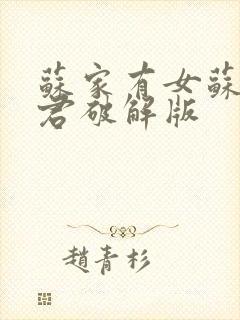 蘇家有女蘇
君破解版
趙青杉